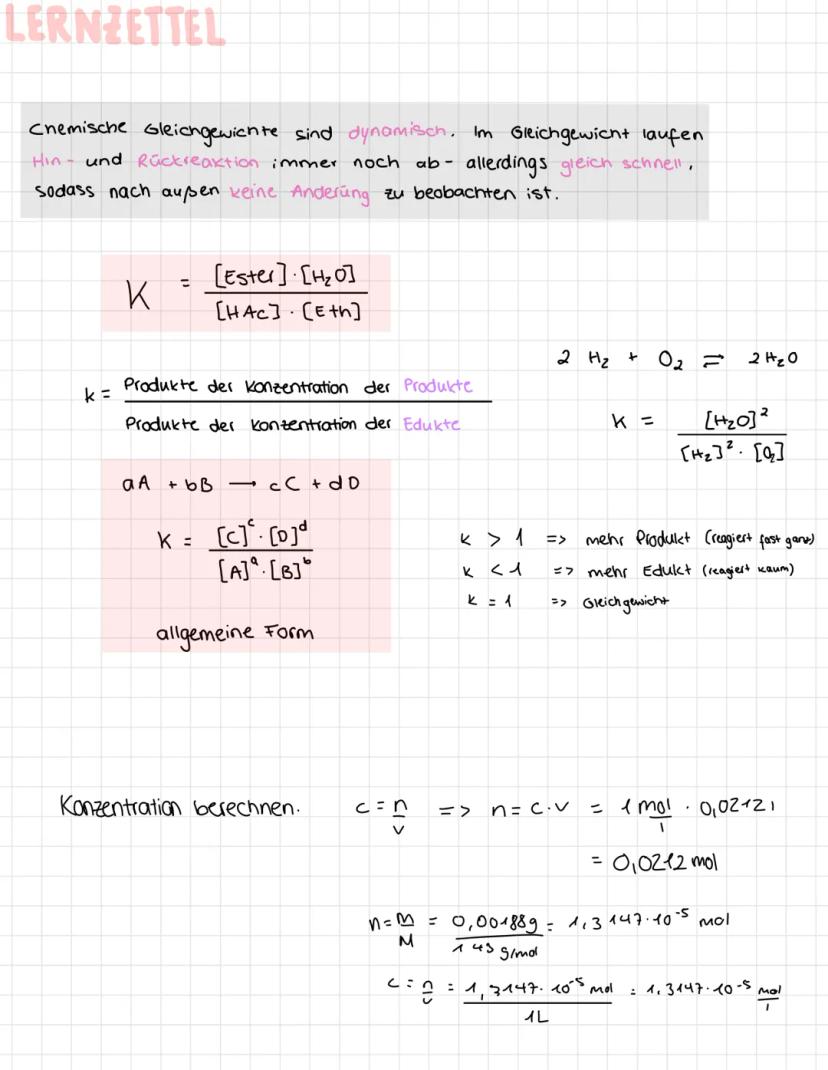 LERNZETTEL
Chemische Gleichgewichte sind dynamisch. Im Gleichgewicht laufen
Hin- und Rückreaktion immer noch ab - allerdings gleich schnell,
sodass nach außen keine Änderung zu beobachten ist.
K = [Ester] · [H₂O] / [HAc] · [Eth]
2 H₂ + O₂ ⇌ 2 H₂O
k = Produkte der Konzentration der Produkte
Produkte der Konzentration der Edukte
K = [H₂O]² / [H₂]² · [O₂]
aA + bB → cC + dD
K = [C]ᶜ · [D]ᵈ / [A]ᵃ · [B]ᵇ
allgemeine Form
K > 1 => mehr Produkt (reagiert fast ganz)
K < 1 => mehr Edukt (reagiert kaum)
K = 1 => Gleichgewicht
Konzentration berechnen. c = n/v => n = c · v = 1 mol/l · 0,0212 l
= 0,0212 mol
n = m/M = 0,00188g / 143 g/mol = 1,3147 · 10⁻⁵ mol
c = n/v = 1,3147 · 10⁻⁵ mol / 1L = 1,3147 · 10⁻⁵ mol/l